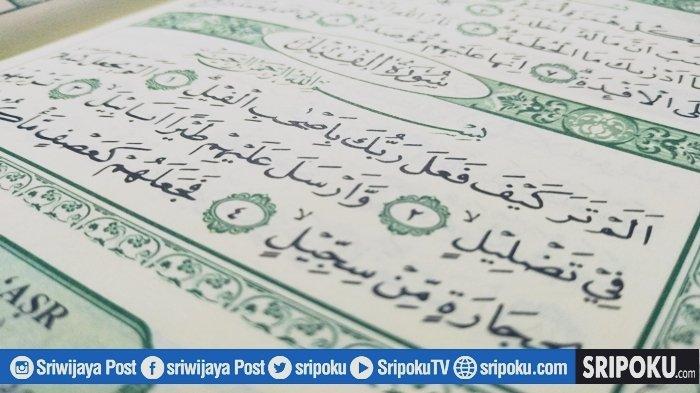 اَدْرٰىكَ مَا الْحُطَمَةُ
الْاَفْـِٕدَةِ ٧ اِنَّهَا عَلَيْهِمْ
سُوْرَةُ الْفِيْلِ
بِسْمِ اللّٰهِ الرَّحْمٰنِ الرَّحِيْمِ
اَلَمْ تَرَ كَيْفَ فَعَلَ رَبُّكَ بِاَصْحٰبِ الْفِيْلِ ١ اَلَمْ يَجْعَلْ
فِيْ تَضْلِيْلٍ ٢ وَّاَرْسَلَ عَلَيْهِمْ طَيْرًا اَبَابِيْلَ ٣ تَرْمِيْهِمْ
بِحِجَارَةٍ مِّنْ سِجِّيْلٍ ٤ فَجَعَلَهُمْ كَعَصْفٍ
'AṢR
Sriwijaya Post sriwijaya Post sripoku SripokuTV sripoku.com SRIPOKU.com